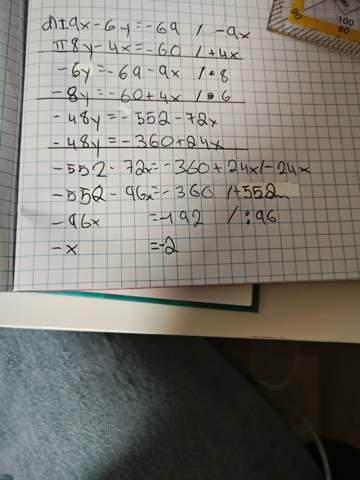 d) I 9x - 6y = -69 / -9x
II 8y - 4x = -60 / +4x
-6y = -69 - 9x / • 8
-8y = -60 + 4x / • 6
-48y = -552 - 72x
-48y = -360 + 24x
-552 - 72x = -360 + 24x / -24x
-552 - 96x = -360 / +552
-96x = -192 / : 96
-x = -2
90
100
80
60